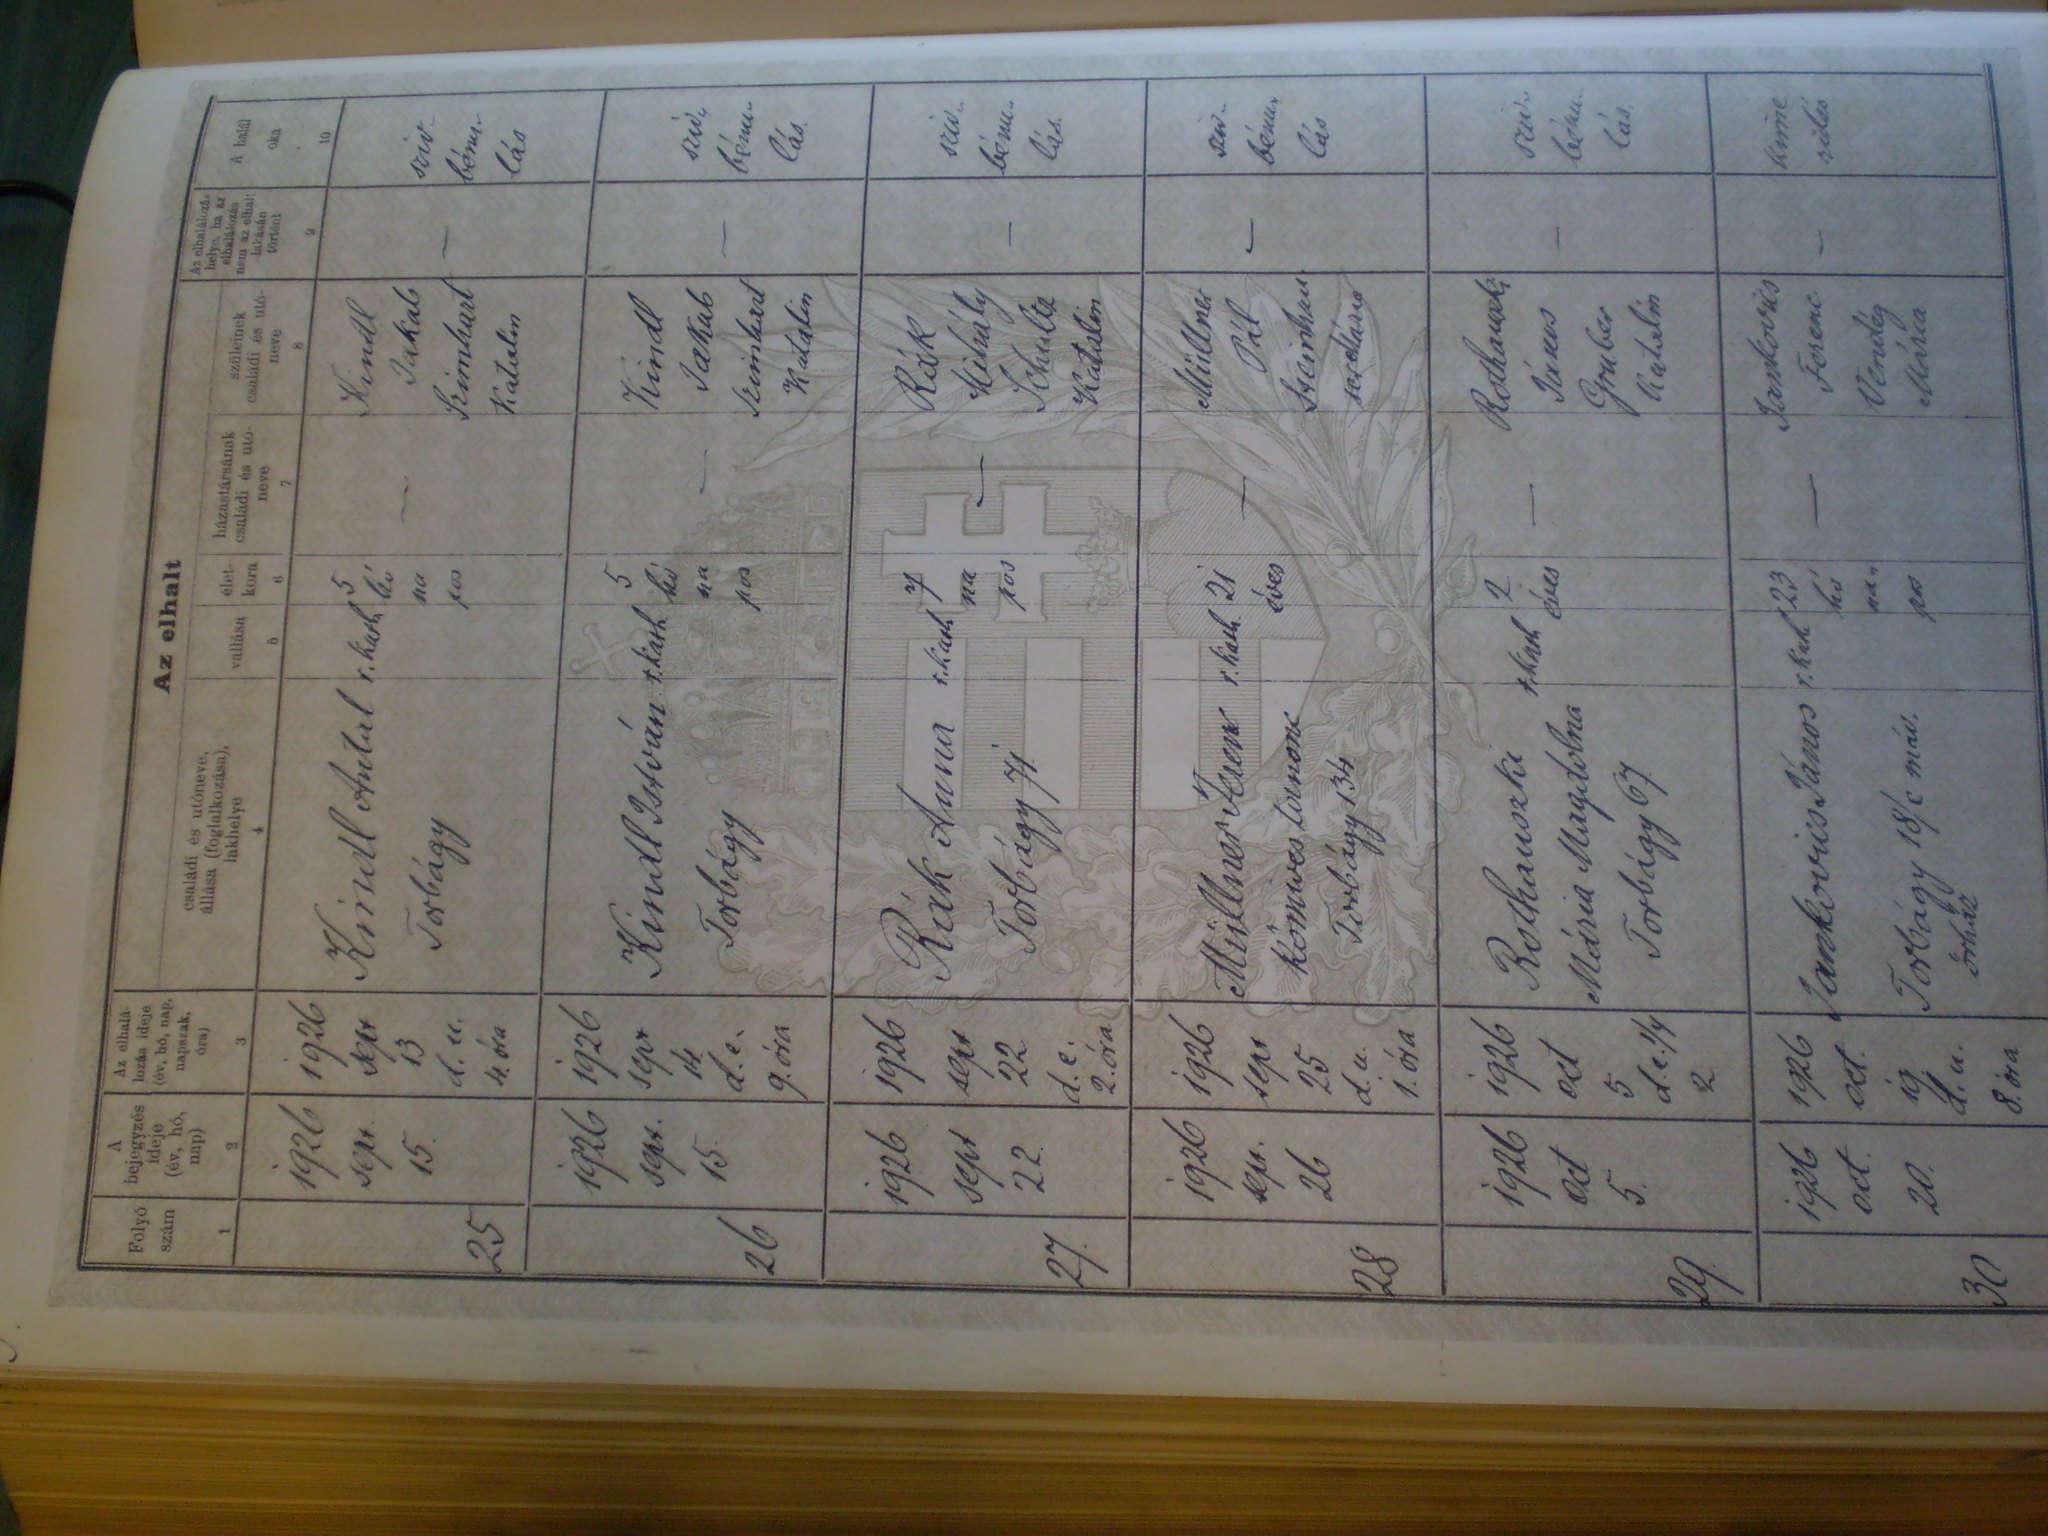 Az elhalt
Folyó
szám
A
bejegyzés
ideje
(év, hó,
nap)
Az elhalá-
lozás ideje
(év, hó, nap,
napszak,
óra)
családi és utóneve,
állása (foglalkozása),
lakhelye
vallása
élet-
kora
házastársának
családi és utó-
neve
szüleinek
családi és utó-
neve
Az elhalálozás
helye, ha az
elhalálozás
nem az elhalt
lakásán
történt
A halál
oka
1
2
3
4
5
6
7
8
9
10
25
1926
sept.
15.
1926
sept
13
d. u.
4. óra
Kindl Antal
Torbágy
r. kath
5
hó
na
pos
—
Kindl
Jakab
Szimhart
Katalin
—
sziv-
bénu-
lás
26
1926
sept.
15.
1926
sept
14.
d. e.
9. óra
Kindl István
Torbágy
r. kath
5
hó
na
pos
—
Kindl
Jakab
Szimhart
Katalin
—
sziv-
bénu-
lás.
27.
1926
sept
22.
1926
sept
22
d. e.
2. óra
Rák Anna
Torbágy 71
r. kath
7
na
pos
—
Rák
Mihály
Schulcz
Katalin
—
sziv-
bénu-
lás.
28
1926
sept.
26
1926
sept
25
d. u.
1. óra
Müllner Ferenc
kőmives tanonc
Torbágy 134
r. kath
21
éves
—
Müllner
Pál
—
sziv-
bénu-
lás
29.
1926
oct
5.
1926
oct
5
d. e. 1/4
2
Rothauszki
Mária Magdolna
Torbágy 67.
r. kath
2
éves
—
Rothauszki
János
Gruber
Katalin
—
sziv-
bénu-
lás.
30
1926
oct.
20.
1926
oct.
19
d. u.
8. óra
Jankovics János
Torbágy 18/c máv.
őrház
r. kath
23
hó
na-
pos
—
Jankovics
Ferenc
Vendég
Mária
—
kime
rülés